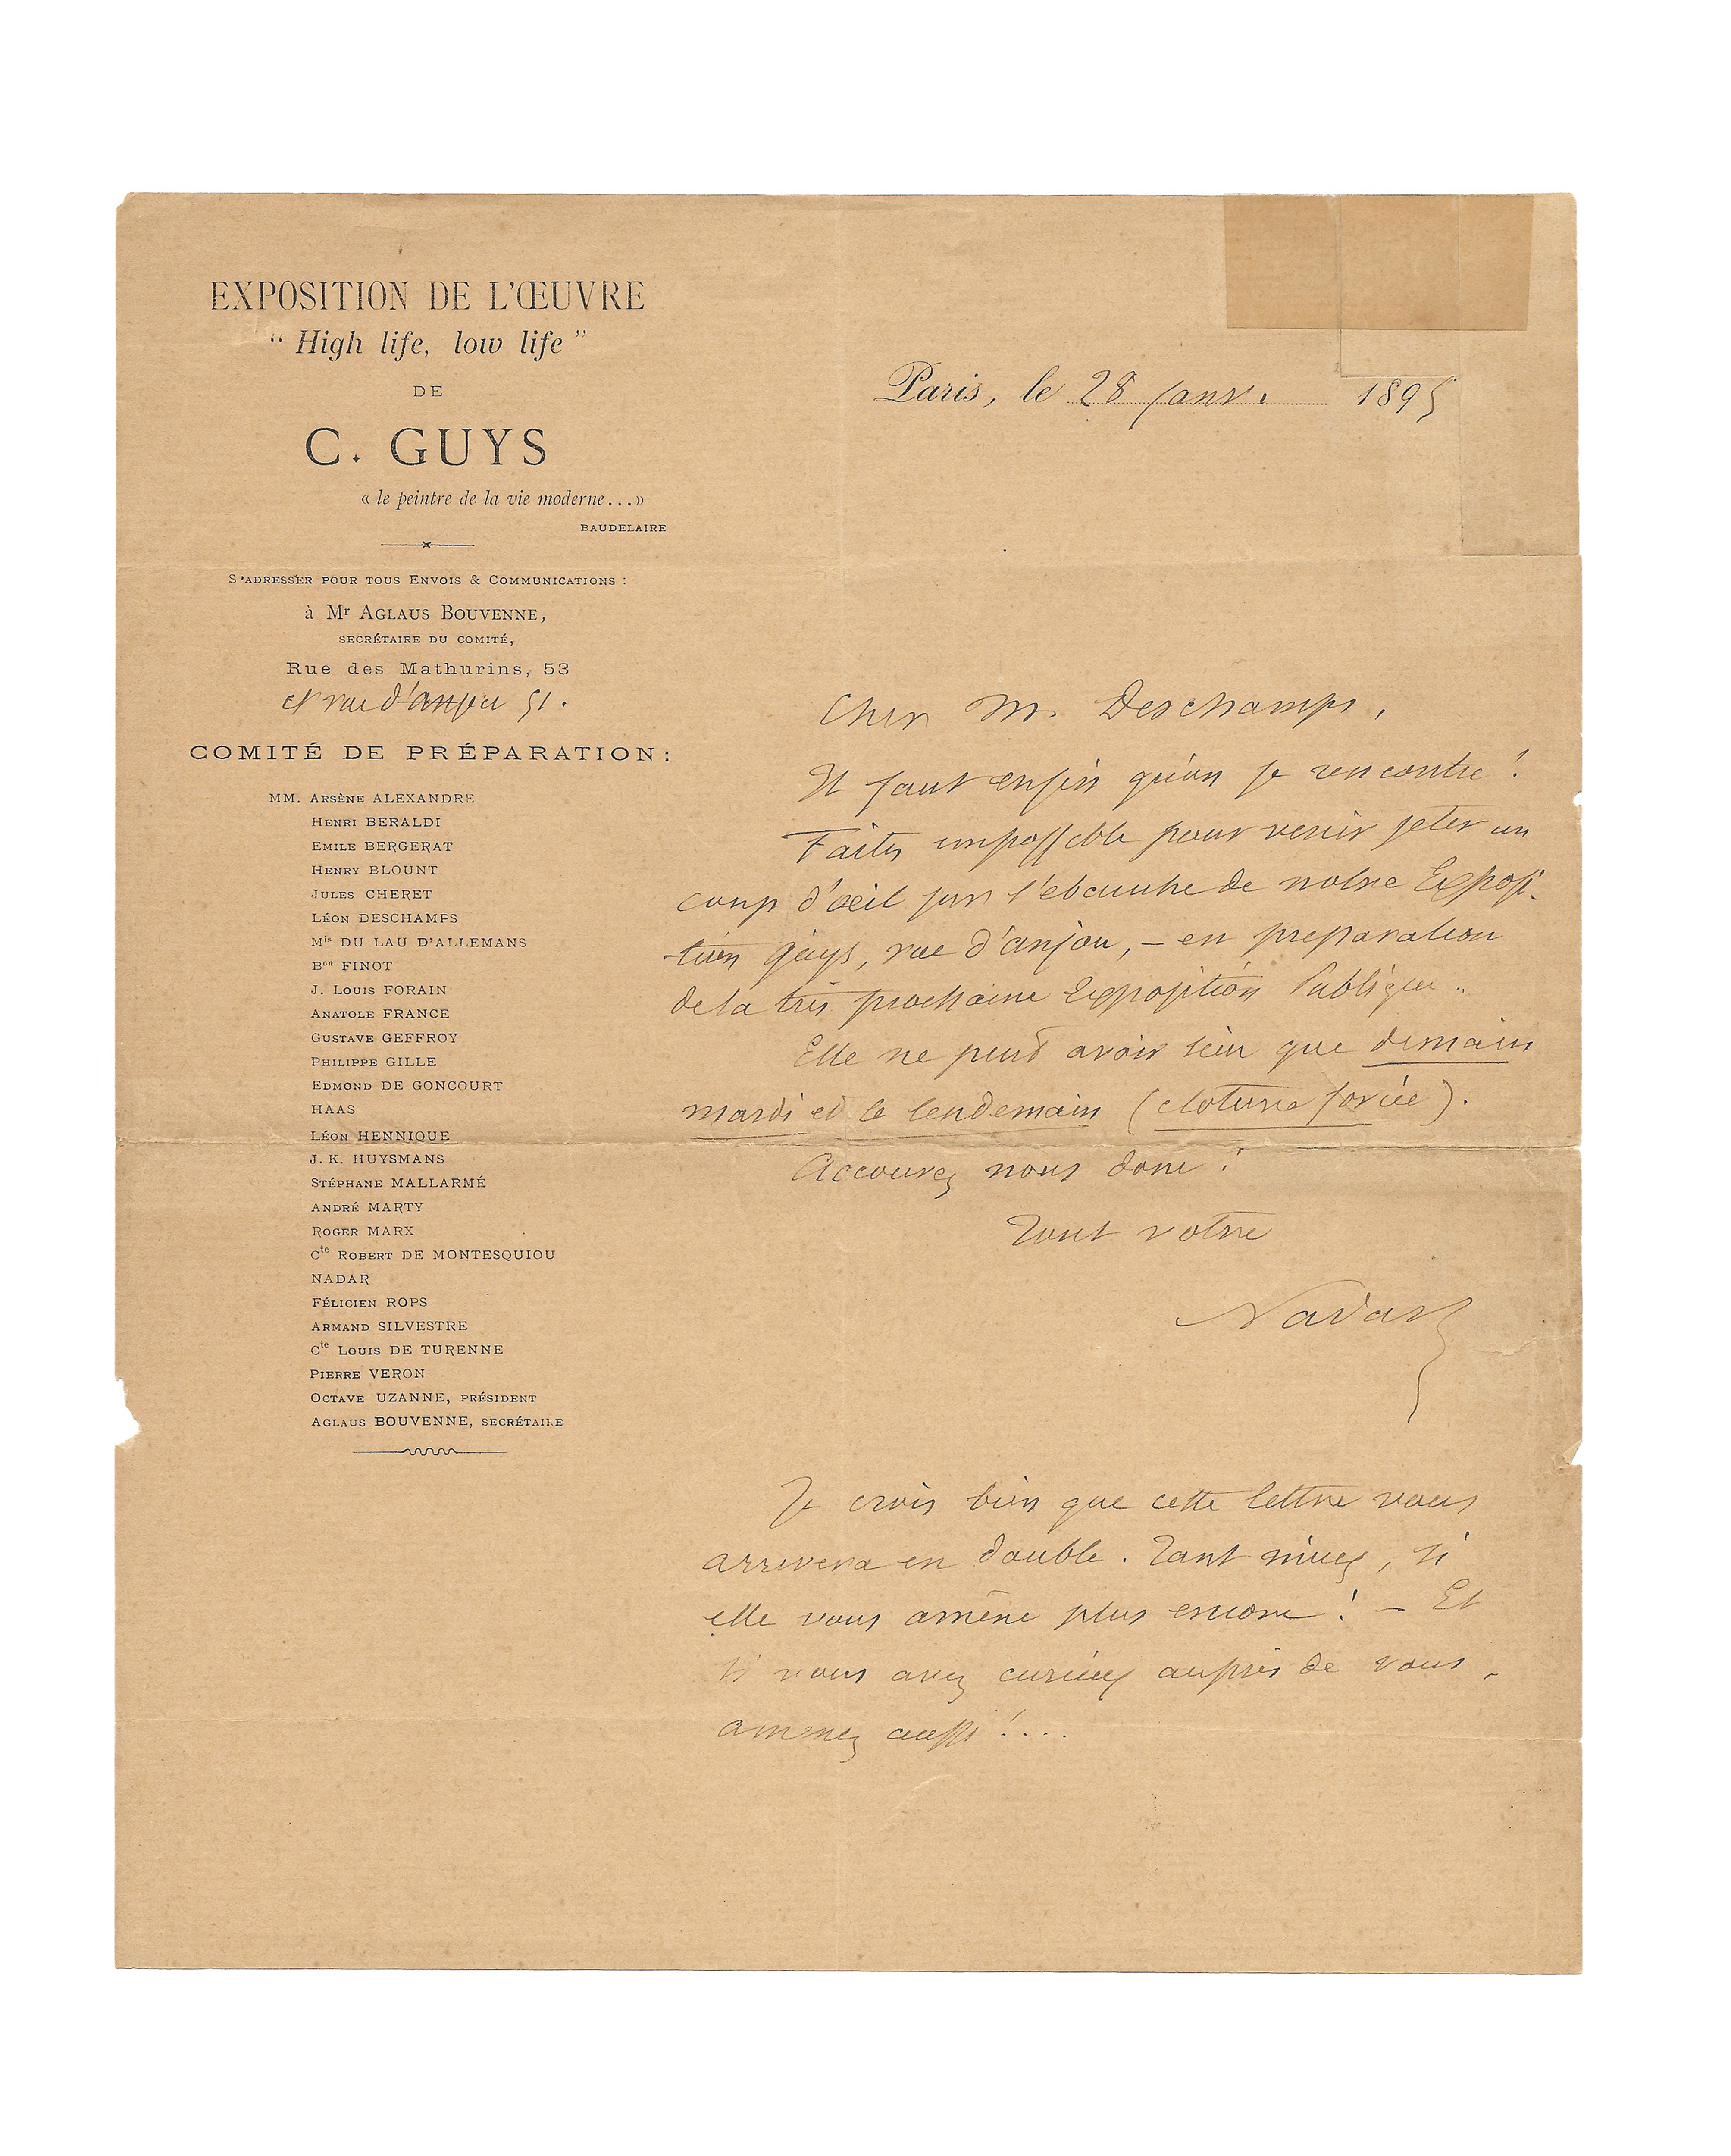 EXPOSITION DE L'ŒUVRE
“ High life, low life ”
DE
C. GUYS
« le peintre de la vie moderne... »
BAUDELAIRE
S'ADRESSER POUR TOUS ENVOIS & COMMUNICATIONS :
à Mr AGLAUS BOUVENNE,
SECRÉTAIRE DU COMITÉ,
Rue des Mathurins, 53
et rue d'anjou 51.
COMITÉ DE PRÉPARATION :
MM. ARSÈNE ALEXANDRE
HENRI BERALDI
EMILE BERGERAT
HENRY BLOUNT
JULES CHERET
LÉON DESCHAMPS
Mis DU LAU D'ALLEMANS
Bon FINOT
J. LOUIS FORAIN
ANATOLE FRANCE
GUSTAVE GEFFROY
PHILIPPE GILLE
EDMOND DE GONCOURT
HAAS
LÉON HENNIQUE
J. K. HUYSMANS
STÉPHANE MALLARMÉ
ANDRÉ MARTY
ROGER MARX
Cte ROBERT DE MONTESQUIOU
NADAR
FÉLICIEN ROPS
ARMAND SILVESTRE
Cte LOUIS DE TURENNE
PIERRE VERON
OCTAVE UZANNE, PRÉSIDENT
AGLAUS BOUVENNE, SECRÉTAIRE
Paris, le 28 janv. 1895
Cher M. Deschamps,
Il faut enfin qu'on se rencontre !
Faites impossible pour venir jeter un
coup d'œil sur l'ebauche de notre Exposi-
tion Guys, rue d'anjou, – en preparation
de la très prochaine Exposition Publique..
Elle ne peut avoir lieu que demain
mardi et le lendemain (cloture forcée).
Accourez nous donc !
Tout votre
Nadar
Je crois bien que cette lettre vous
arrivera en double. Tant mieux, si
elle vous amène plus encore ! – Et
si vous avez curieux auprès de vous,
amenez aussi !....